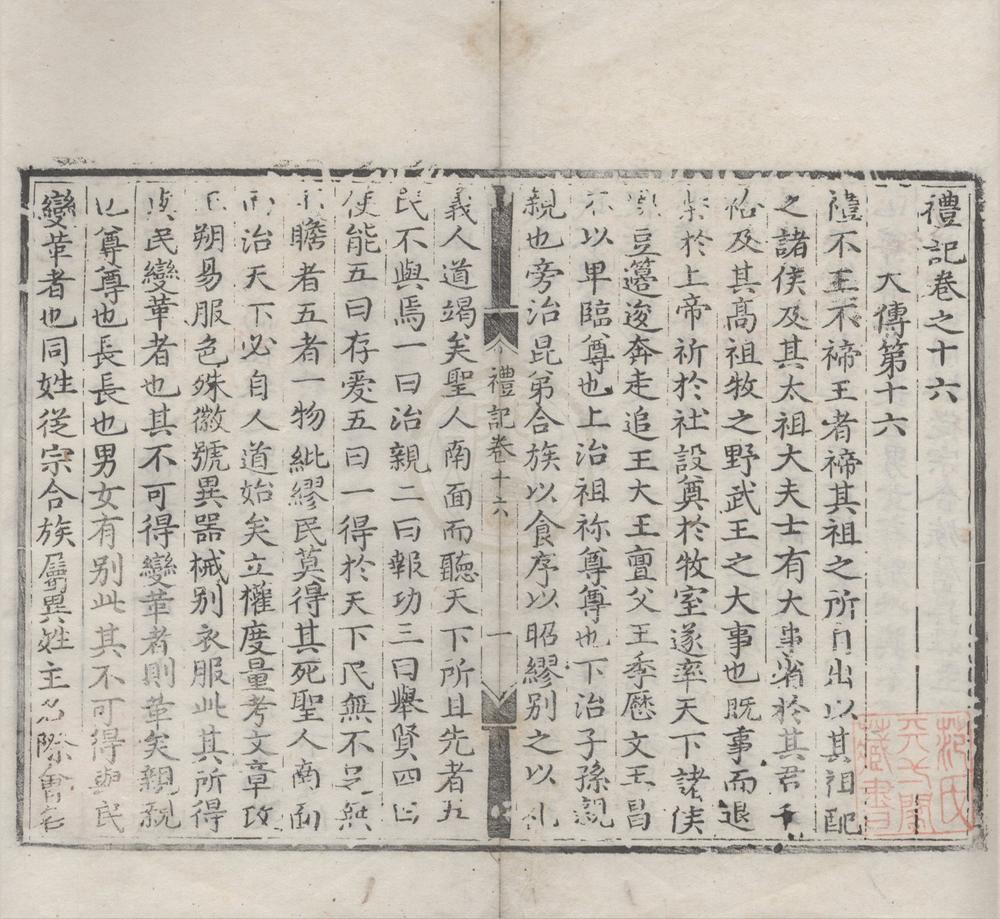 禮記卷之十六
大傳第十六
禮不王不禘王者禘其祖之所自出以其祖配
之諸侯及其太祖大夫士有大事省於其君干
祫及其高祖牧之野武王之大事也既事而退
柴於上帝祈於社設奠於牧室遂率天下諸侯
執豆籩逡奔走追王大王亶父王季歷文王昌
不以卑臨尊也上治祖祢尊尊也下治子孫親
親也旁治昆弟合族以食序以昭繆別之以礼
禮記卷十六
一
義人道竭矣聖人南面而聽天下所且先者五
民不與焉一曰治親二曰報功三曰舉賢四曰
使能五曰存愛五曰一得於天下民無不足無
不贍者五者一物紕繆民莫得其死聖人南面
而治天下必自人道始矣立權度量考文章攺
正朔易服色殊徽號異器械別衣服此其所得
與民變革者也其不可得變革者則革矣親親
也尊尊也長長也男女有別此其不可得與民
變革者也同姓從宗合族屬異姓主名際會名
范氏天一閣藏書